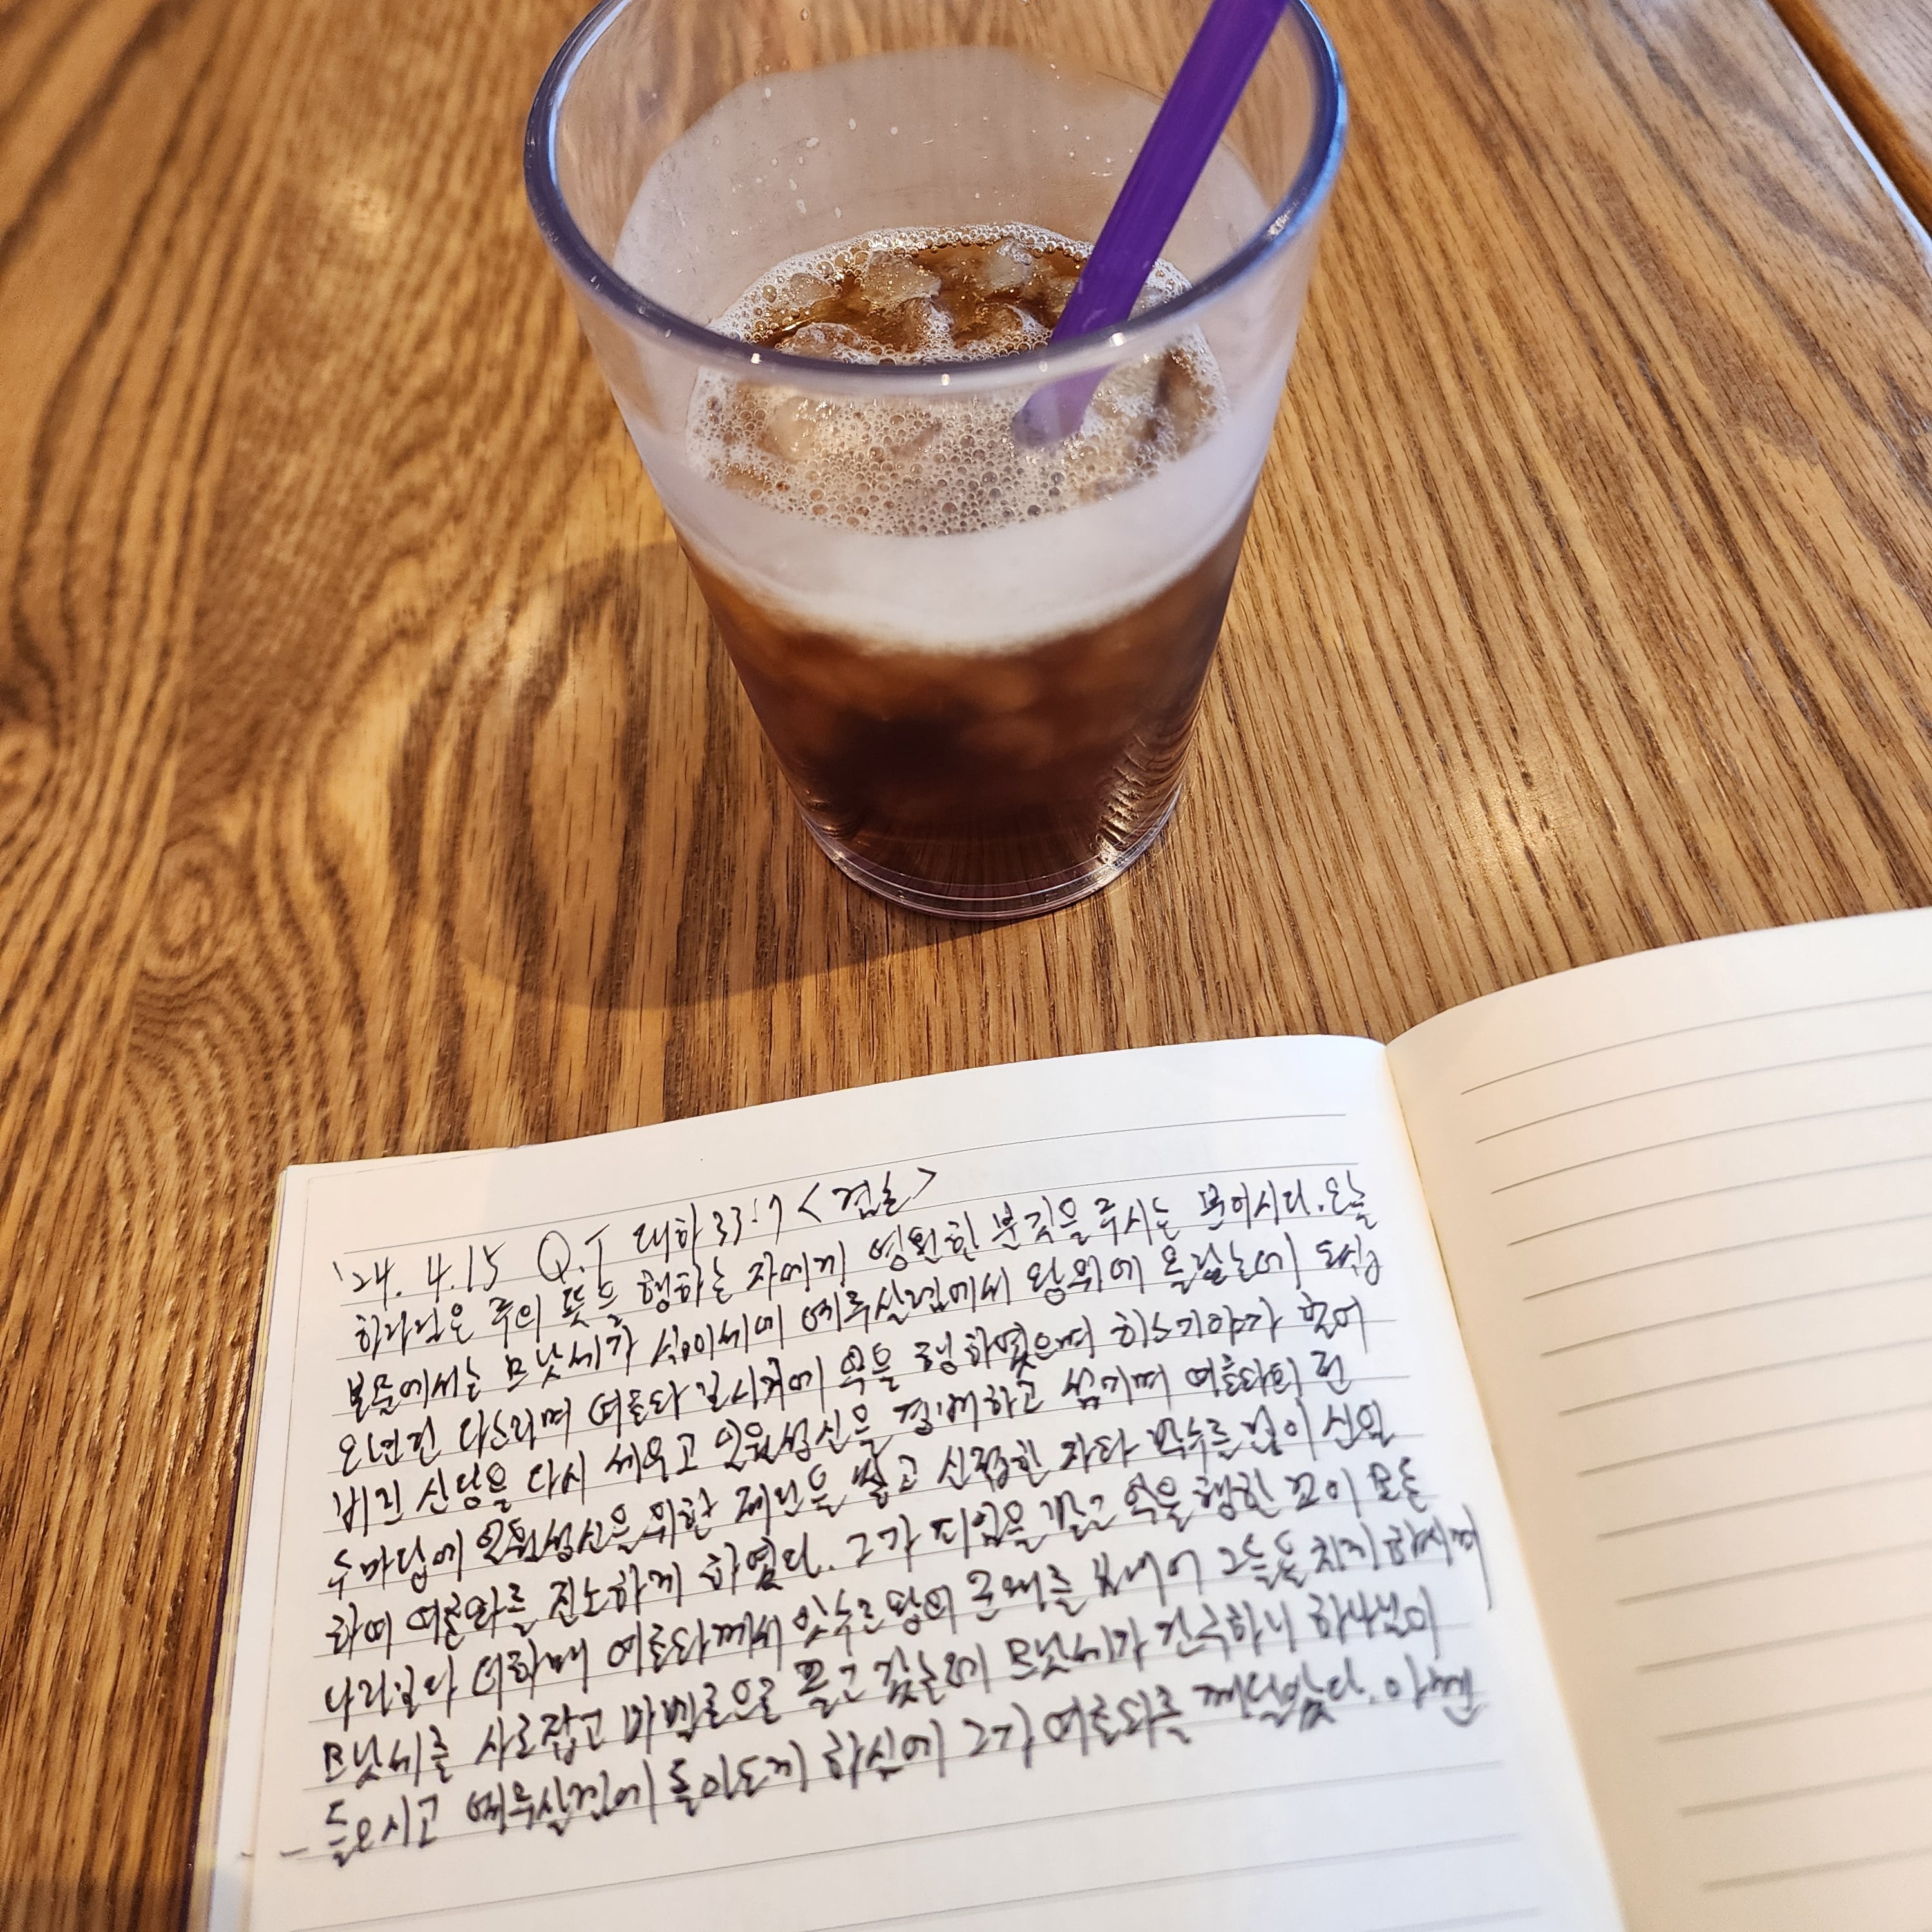 '24. 4.15 Q.T 대하 33:7 <겸손>
하나님은 주의 뜻을 행하는 자에게 영원한 분깃을 주시는 분이시다. 오늘
본문에서는 므낫세가 십이세에 예루살렘에서 왕위에 올랐는데 오십
오년간 다스리며 여호와 보시기에 악을 행하였으며 히스기야가 헐어
버린 신당을 다시 세우고 일월성신을 경배하고 섬기며 여호와의 전
두마당에 일월성신을 위한 제단을 쌓고 신접한 자와 박수를 많이 신임
하여 여호와를 진노하게 하였다. 그가 꾀임을 받고 악을 행한 것이 모든
나라보다 더하매 여호와께서 앗수르 왕의 군대를 보내어 그들을 치게 하시며
므낫세를 사로잡고 바벨론으로 끌고 갔는데 므낫세가 간구하니 하나님이
들으시고 예루살렘에 돌아오게 하심에 그가 여호와를 깨달았다. 아멘